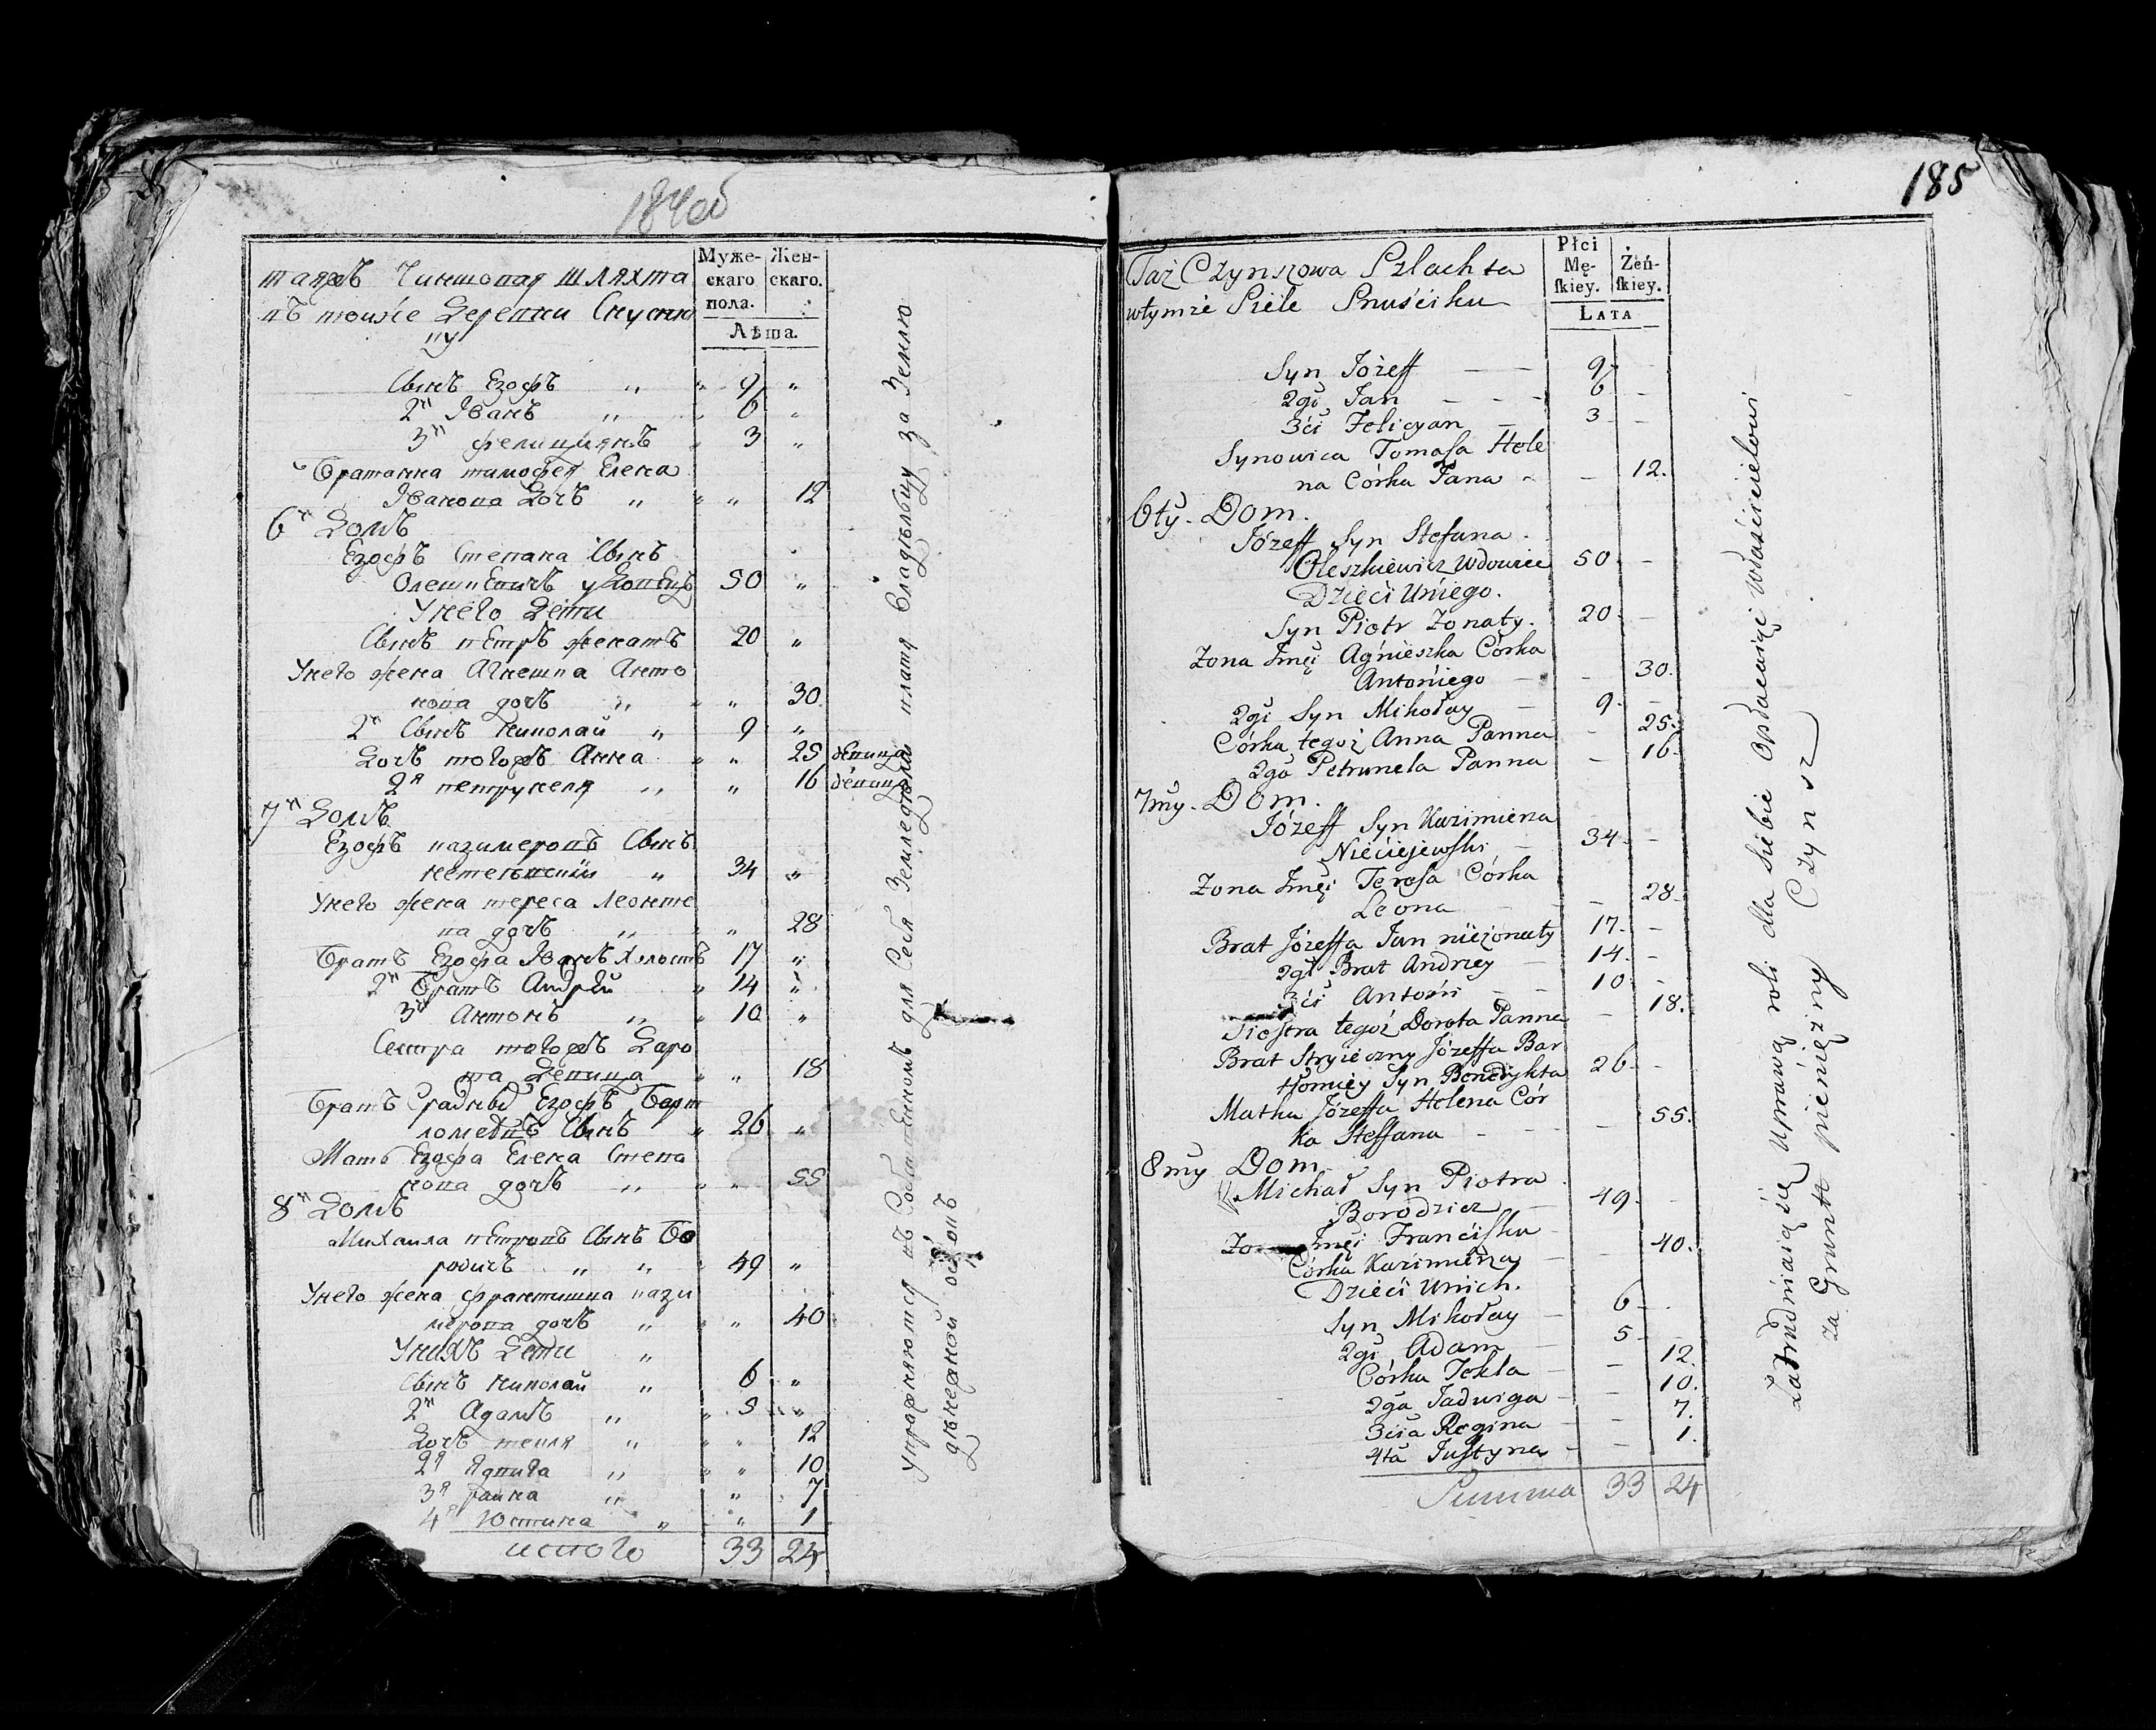 184об
Муже-
скаго
пола.
Жен-
скаго.
Лѣта.
таяжъ Чиншовая шляхта
въ тойже Деревни
Сынъ Езофъ " " 9 "
2й Иванъ " " 6 "
3й Фелицианъ " 3 "
Братанка тимофея Елена
Иванова Дочъ " " " 12
6й Домъ
Езофъ Степана Сынъ
Олешкевичъ удовецъ 50 "
Унего Дети
Сынъ петръ женатъ 20 "
Унего жена Агнешка Анто
нова дочъ " " " 30
2й Сынъ николай " 9 "
Дочъ тогожъ Анна " " 25 девица
2я петрунеля " " 16 девица
7й Домъ
Езофъ казимеровъ Сынъ
34 "
Унего жена тереса Леонте
ва дочъ " " " 28
Братъ Езофа Иванъ Холостъ 17 "
2й Братъ Андрей " 14 "
3й Антонъ " " 10 "
Сестра тогожъ Даро
та Девица " " 18
Братъ Езофъ Барт
ломеевъ Сынъ " 26 "
Мать Езофа Елена Степа
нова дочъ " " " 55
8й Домъ
Михаила петровъ Сынъ Бо
родичъ " " " 49 "
Унего жена францишка кази
мерова дочъ " " " 40
Унихъ Дети "
Сынъ николай " 6 "
2й Адамъ " " 5 "
Дочъ текля " " " 12
2я Ядвига " " " 10
3я раина " " 7
4я Юстина " " 1
итого 33 24
Упражняются въ хлебопашествѣ для Себя Земледѣлии плату Владѣльцу за Землю
185
Płci
Mę-
skiey.
Żeń-
skiey.
Lata
Taż Czynszowa Szlachta
wtymże Siele Snuściku
Syn Józeff — — 9 —
2gi Jan — — 6 —
3ci Felicyan — 3 —
Synowica Tomasa Hele
na Córka Jana - — 12.
6ty. Dom.
Józeff Syn Stefana.
Oleszkiewicz Wdowiec 50 —
Dzieci Uniego.
Syn Piotr Zonaty. 20 —
Zona Imęi Agnieszka Córka
Antoniego — — 30.
2gi Syn Mikołay — 9 —
Córka tegoż Anna Panna — 25.
2ga Petrunela Panna — 16.
7my. Dom.
Józeff Syn Kazimierza
Nieciejewski — 34 —
Zona Imęi Teresa Córka
Leona — — 28.
Brat Józeffa Jan nieżonaty 17. —
2gi Brat Andrzey — 14. —
3ci Antoni — — 10 —
Siostra tegoż Dorota Panna — 18.
Brat Stryieczny Józeffa Bar
tłomiey Syn Benedykta 26 —
Matka Józeffa Helena Cór
ka Steffana — — 55.
8my Dom
Michał Syn Piotra
Borodzicz — 49 —
Zona Imęi Franciszka
Córka Kazimierza — 40.
Dzieci Unich.
Syn Mikołay — 6 —
2gi Adam — 5 —
Córka Tekla — — 12.
2ga Jadwiga — — 10.
3cia Regina — — 7.
4ta Justyna — — 1.
Summa 33 24
Zatrudniaią się uprawą roli dla siebie opłacaiąc właścicielowi —
za Grunt pieniężny Czynsz